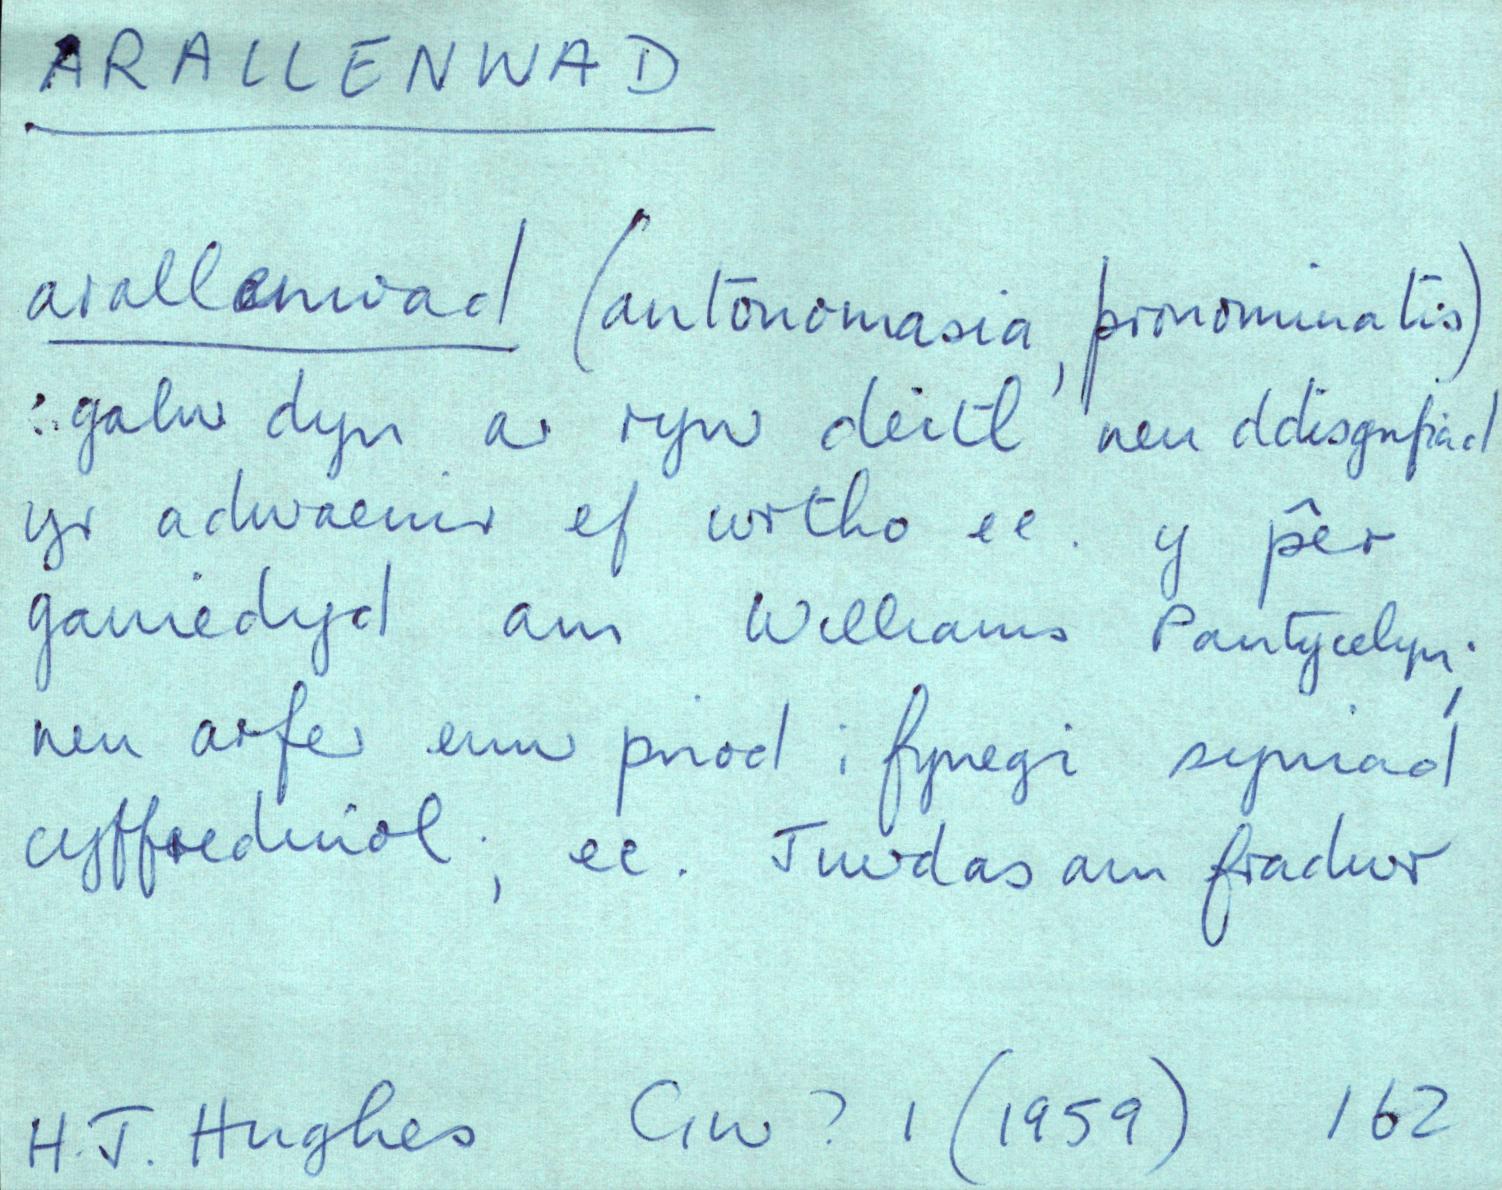 ARALLENWAD
arallenwad (antonomasia, pronominatis)
: galw dyn ar ryw deitl neu ddisgrifiad
yr adwaenir ef wrtho ee. y pêr
ganiedydd am Williams Pantycelyn;
neu arfer enw priod i fynegi syniad
cyffredinol; ee. Jiwdas am fradwr
H.J. Hughes Gw? 1 (1959) 162